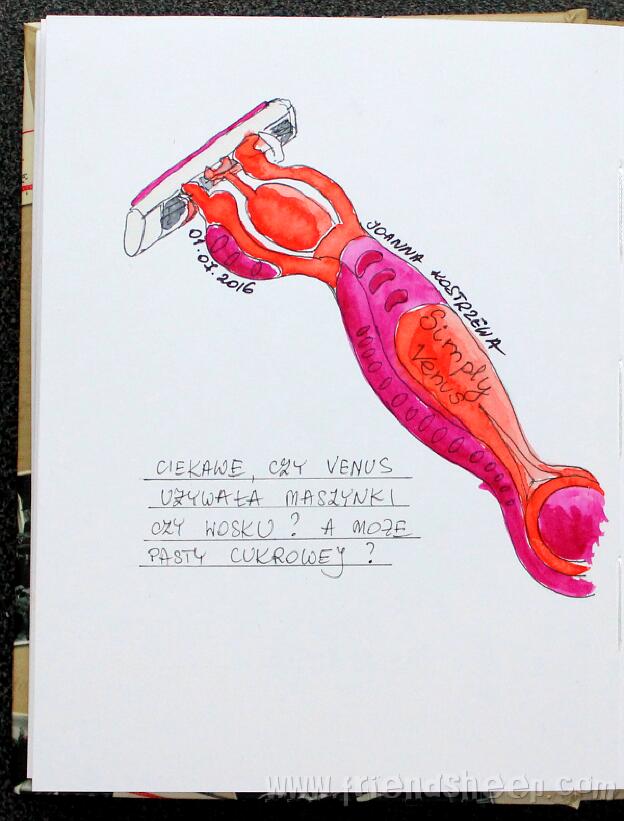 01.07.2016
JOANNA KOSTRZEWA
Simply
Venus
CIEKAWE, CZY VENUS
UŻYWAŁA MASZYNKI
CZY WOSKU? A MOŻE
PASTY CUKROWEJ?
www.friendsheep.com